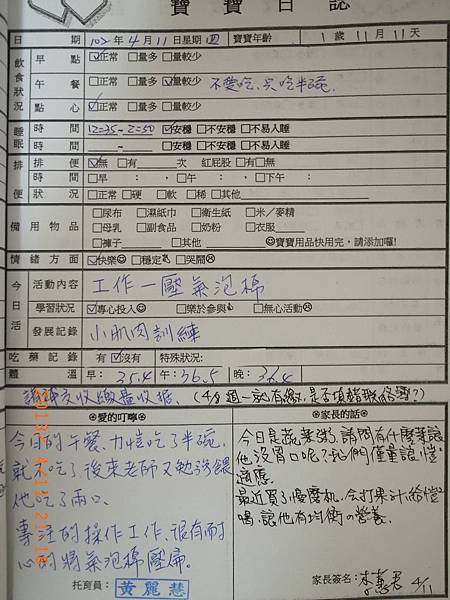 寶寶日誌
日 期 102年4月11日星期四 寶寶年齡 1歲11月11天
飲食狀況 早 點 ☑正常 □量多 □量較少
午 餐 □正常 □量多 ☑量較少 不愛吃、只吃半碗
點 心 ☑正常 □量多 □量較少
睡眠 時 間 12:35~2:50 ☑安穩 □不安穩 □不易入睡
時 間 ~ □安穩 □不安穩 □不易入睡
排便 排 便 ☑無 □有 次 紅屁股 □有□無
時 間 □早 : , □午 : , □下午 :
狀 況 □正常 □硬 □軟 □稀 □其他
備用物品 □尿布 □濕紙巾 □衛生紙 □米/麥精
□母乳 □副食品 □奶粉 □衣服
□褲子 □其他 ☺寶寶用品快用完,請添加喔!
情緒方面 ☑快樂☺ □穩定 □哭鬧☹
今日活 活動內容 工作一壓氣泡棉
學習狀況 ☑專心投入☺ □樂於參與 □無心活動☹
發展記錄 小肌肉訓練
吃藥記錄 有 ☑沒有 特殊狀況:
體 溫 早: 35.4 午: 36.5 晚: 36.4
收據。(4/8週一就有繳,是否
❁愛的叮嚀❁
今日的午餐、力愷吃了半碗,
就不吃了,後來老師又勉強餵
他吃了兩口。
專注的操作工作、很有耐
心的將氣泡棉壓扁。
托育員: 黃麗慧
❁家長的話❁
今日是蔬菜粥,請問有什麼菜讓
他沒胃口呢?我們僅量讓"愷"
適應。
最近買了慢磨机,會打果汁給"愷"
喝,讓他有均衡的營養。
家長簽名: 4/11
2013 4 11 21:16